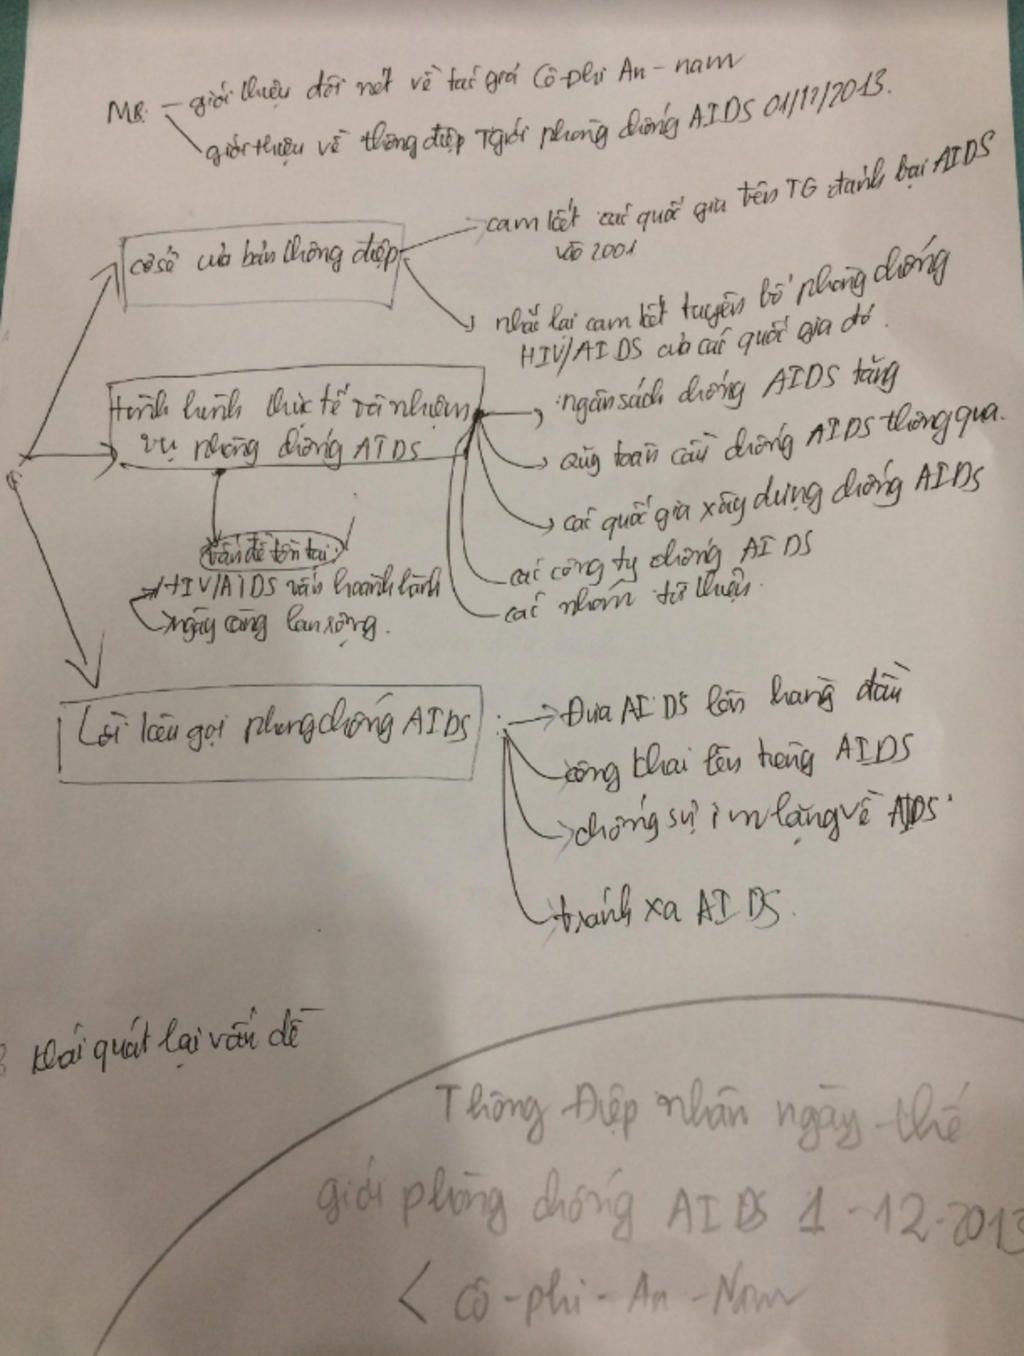 MB. – giới thiệu đôi nét về tác giả Cô-phi An-nam
giới thiệu về thông điệp TGiới phòng chống AIDS 01/12/2013.
cơ sở của bản thông điệp
cam kết các quốc gia trên TG đánh bại AIDS
vào 2001
nhắc lại cam kết tuyên bố phòng chống
HIV/AIDS của các quốc gia đó.
tình hình thực tế và nhiệm
vụ phòng chống AIDS
ngân sách chống AIDS tăng
quỹ toàn cầu chống AIDS thông qua.
các quốc gia xây dựng chống AIDS
các công ty chống AIDS
các nhóm từ thiện.
vấn đề tồn tại:
HIV/AIDS vẫn hoành hành
ngày càng lan rộng.
Lời kêu gọi phòng chống AIDS
Đưa AIDS lên hàng đầu
công khai lên tiếng AIDS
chống sự im lặng về AIDS
tránh xa AIDS.
khái quát lại vấn đề
Thông Điệp nhân ngày thế
giới phòng chống AIDS 1-12-2013
< Cô-phi-An-Nam